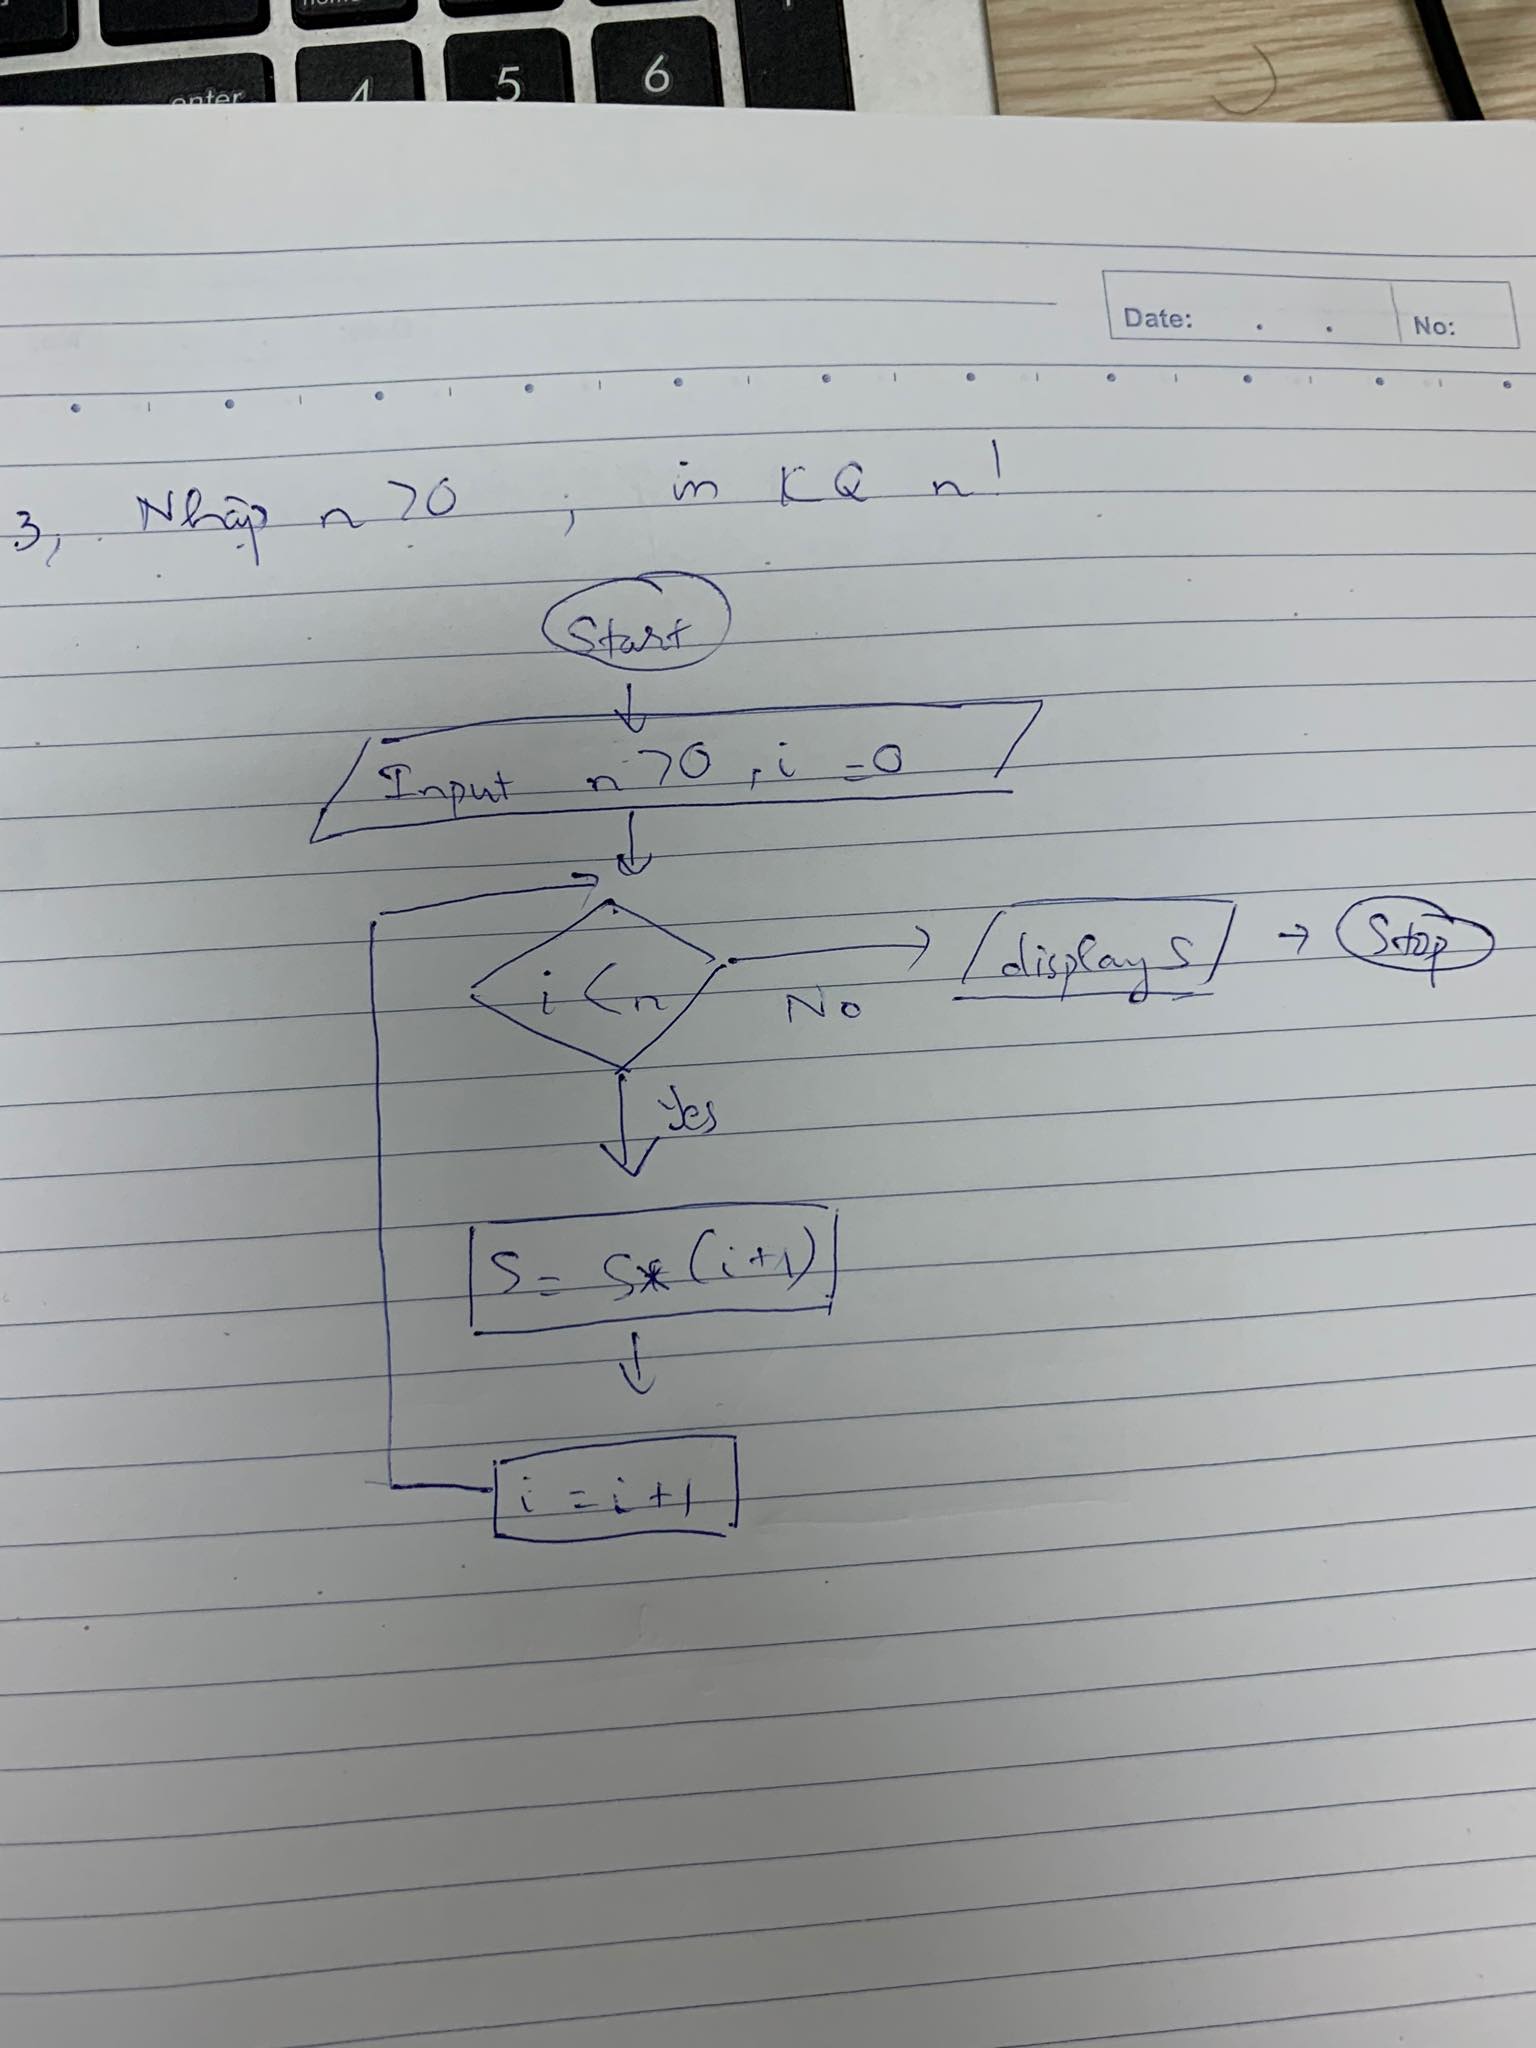 enter 4 5 6
Date: . . No:
3, Nhập n >0 ; in KQ n!
Start
Input n >0 , i = 0
i < n
No
display S
→ Stop
Yes
S = S * (i+1)
i = i + 1